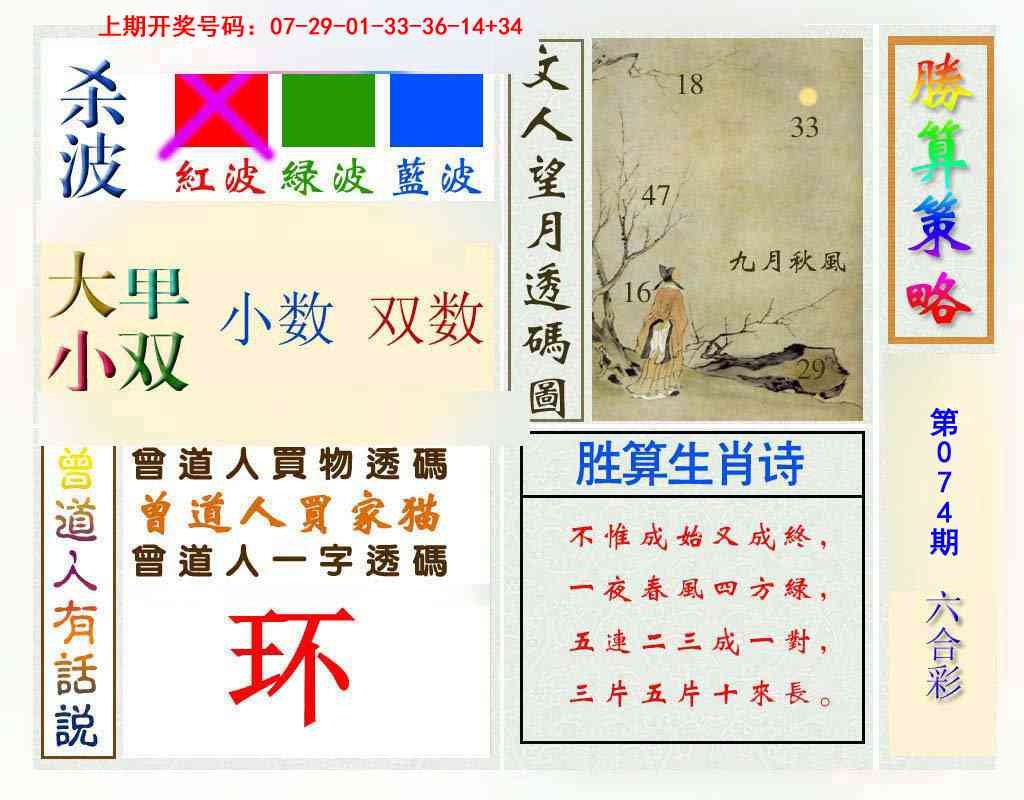 上期开奖号码：07-29-01-33-36-14+34
杀波
紅波 緑波 藍波
大小 甲双
小数 双数
文人望月透碼圖
18
33
47
九月秋風
16
29
勝算策略
第074期
六合彩
曾道人有話説
曾道人買物透碼
曾道人買家猫
曾道人一字透碼
环
胜算生肖诗
不惟成始又成終，
一夜春風四方緑，
五連二三成一對，
三片五片十來長。